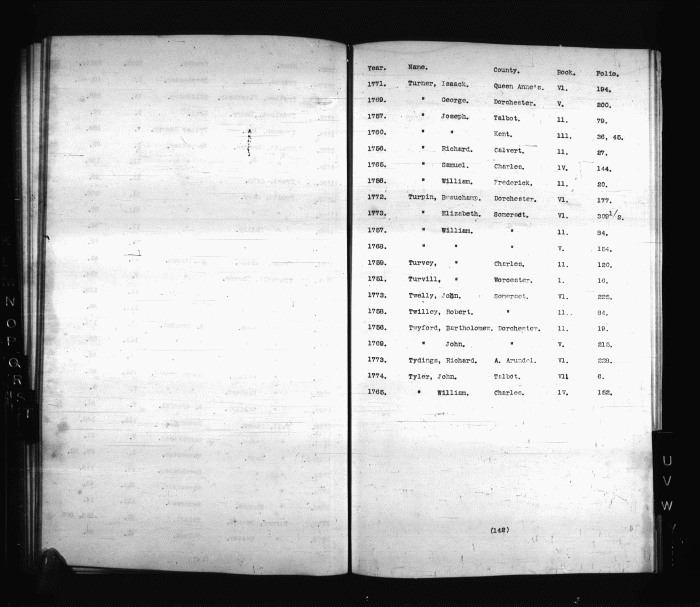 Year. Name. County. Book. Folio.
1771. Turner, Isaack. Queen Anne's. V1. 194.
1769. " George. Dorchester. V. 200.
1757. " Joseph. Talbot. 11. 79.
1760. " " Kent. 111. 36, 45.
1756. " Richard. Calvert. 11. 27.
1765. " Samuel. Charles. 1V. 144.
1758. " William. Frederick. 11. 20.
1772. Turpin, Beauchamp. Dorchester. V1. 177.
1773. " Elizabeth. Somerset. V1. 309 1/2.
1757. " William. " 11. 84.
1768. " " " V. 154.
1759. Turvey, " Charles. 11. 120.
1751. Turvill, " Worcester. 1. 16.
1773. Twelly, John. Somerset. V1. 225.
1758. Twilley, Robert. " 11. 84.
1756. Twyford, Bartholomew. Dorchester. 11. 19.
1769. " John. " V. 215.
1773. Tydings, Richard. A. Arundel. V1. 228.
1774. Tyler, John. Talbot. V11 6.
1765. " William. Charles. 1V. 152.
(142)
K L M N O P Q R S T
U V W